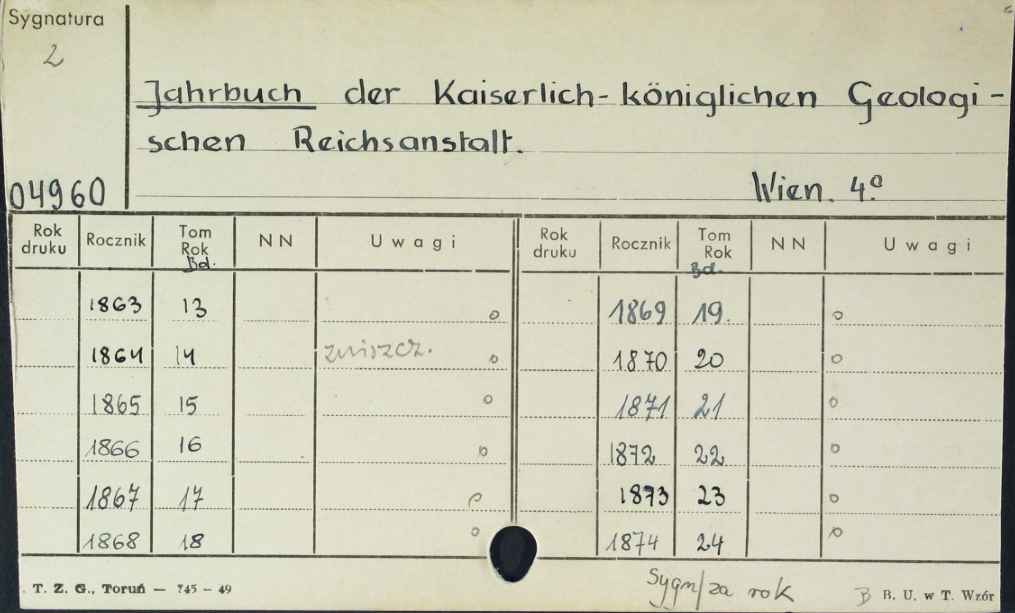 Sygnatura
2
Jahrbuch der Kaiserlich-königlichen Geologi-
schen Reichsanstalt.
04960
Wien. 4º
Rok druku Rocznik Tom Rok Bd. NN Uwagi Rok druku Rocznik Tom Rok Bd. NN Uwagi
1863 13 o 1869 19. o
1864 14 zniszcz. o 1870 20 o
1865 15 o 1871 21 o
1866 16 o 1872 22 o
1867 17 o 1873 23 o
1868 18 o 1874 24 o
Sygn/za rok
T. Z. G., Toruń — 745 – 49 B. U. w T. Wzór